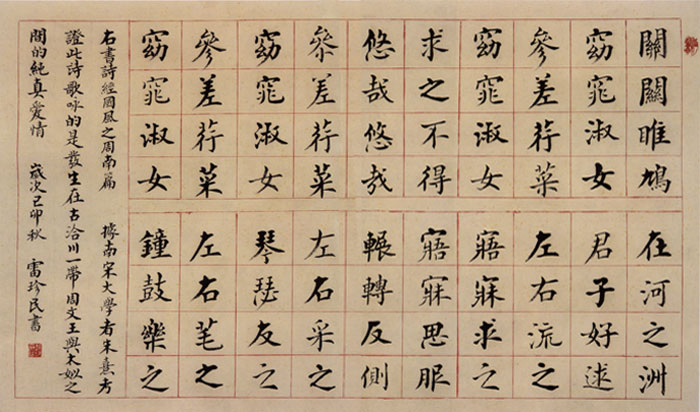 關關雎鳩 在河之洲
窈窕淑女 君子好逑
參差荇菜 左右流之
窈窕淑女 寤寐求之
求之不得 寤寐思服
悠哉悠哉 輾轉反側
參差荇菜 左右采之
窈窕淑女 琴瑟友之
參差荇菜 左右芼之
窈窕淑女 鐘鼓樂之
右書詩經國風之周南篇 據南宋大學者朱熹考
證此詩歌咏的是發生在古洽川一帶周文王與太姒之
間的純真愛情 歲次己卯秋 雷珍民書